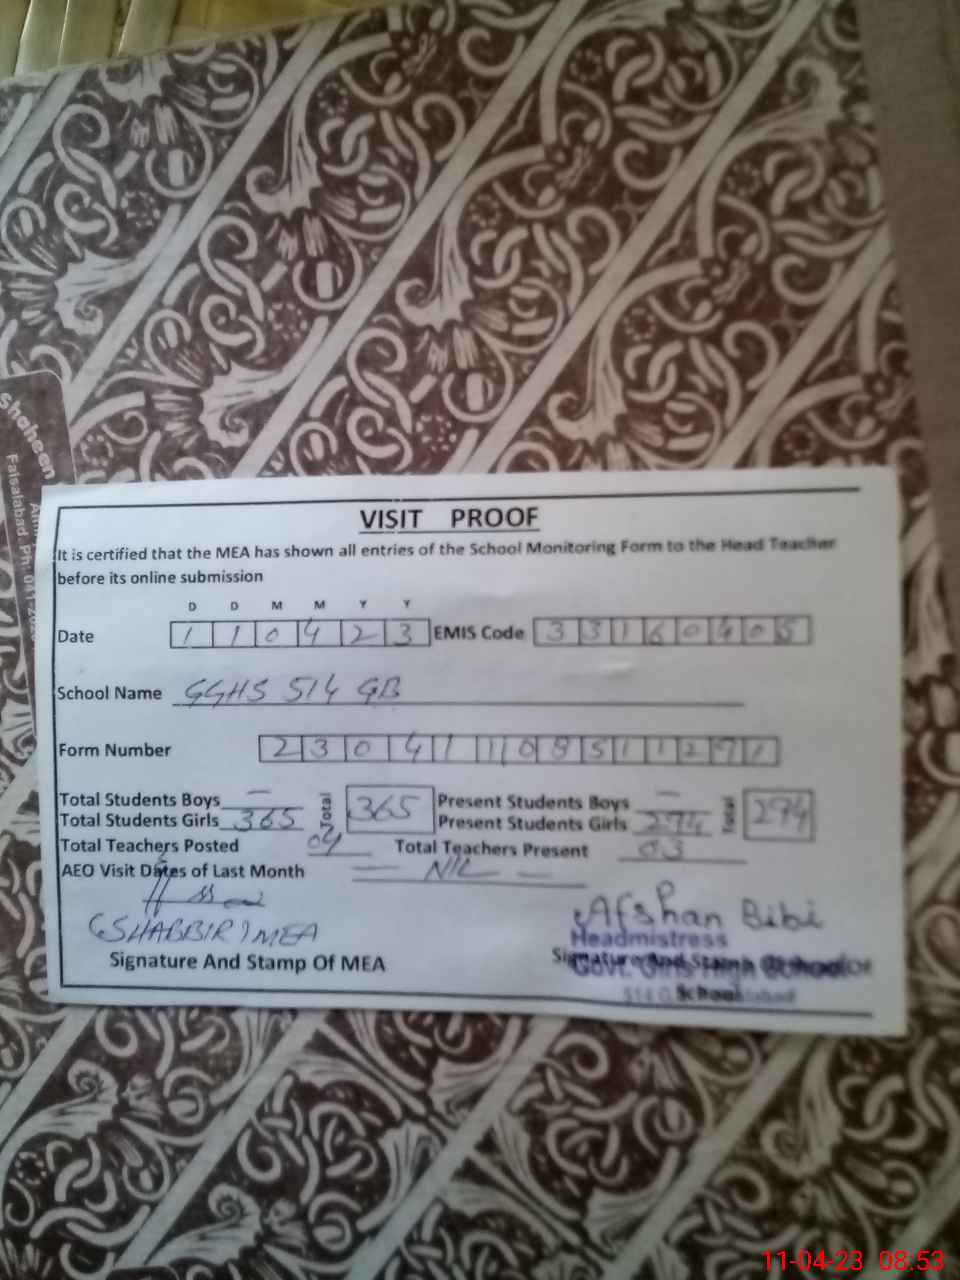 Shaheen
Faisalabad. Ph: 041-
VISIT PROOF
It is certified that the MEA has shown all entries of the School Monitoring Form to the Head Teacher
before its online submission
D D M M Y Y
Date 1 1 0 4 2 3 EMIS Code 3 3 1 6 0 4 0 5
School Name GGHS 514 GB
Form Number 2 3 0 4 1 1 0 8 5 1 1 2 9 1
Total Students Boys — Total 365 Present Students Boys — Total 294
Total Students Girls 365 Present Students Girls 294
Total Teachers Posted 04 Total Teachers Present 03
AEO Visit Dates of Last Month — NIL —
(SHABBIR) MEA
Afshan Bibi
Headmistress
Signature And Stamp Of MEA
Signature And Stamp Of
Govt. Girls High School
School
514
11-04-23 08:53